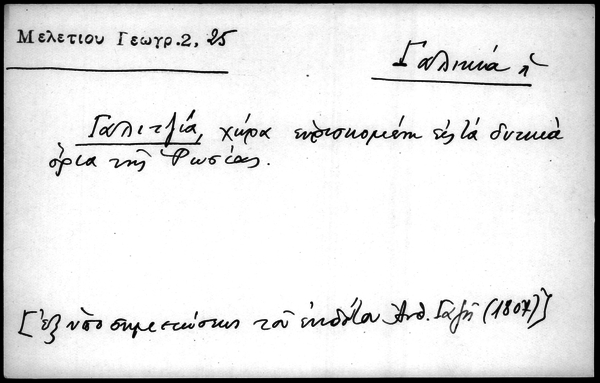 Μελετίου Γεωγρ. 2, 25
Γαλικιά ἡ
Γαλιτζία, χώρα εὑρισκομένη εἰς τὰ δυτικὰ
ὅρια τῆς Ρωσίας.
[ἐξ ὑποσημειώσεως τοῦ ἐκδότου Ἀνθ. Γαζῆ (1807)]